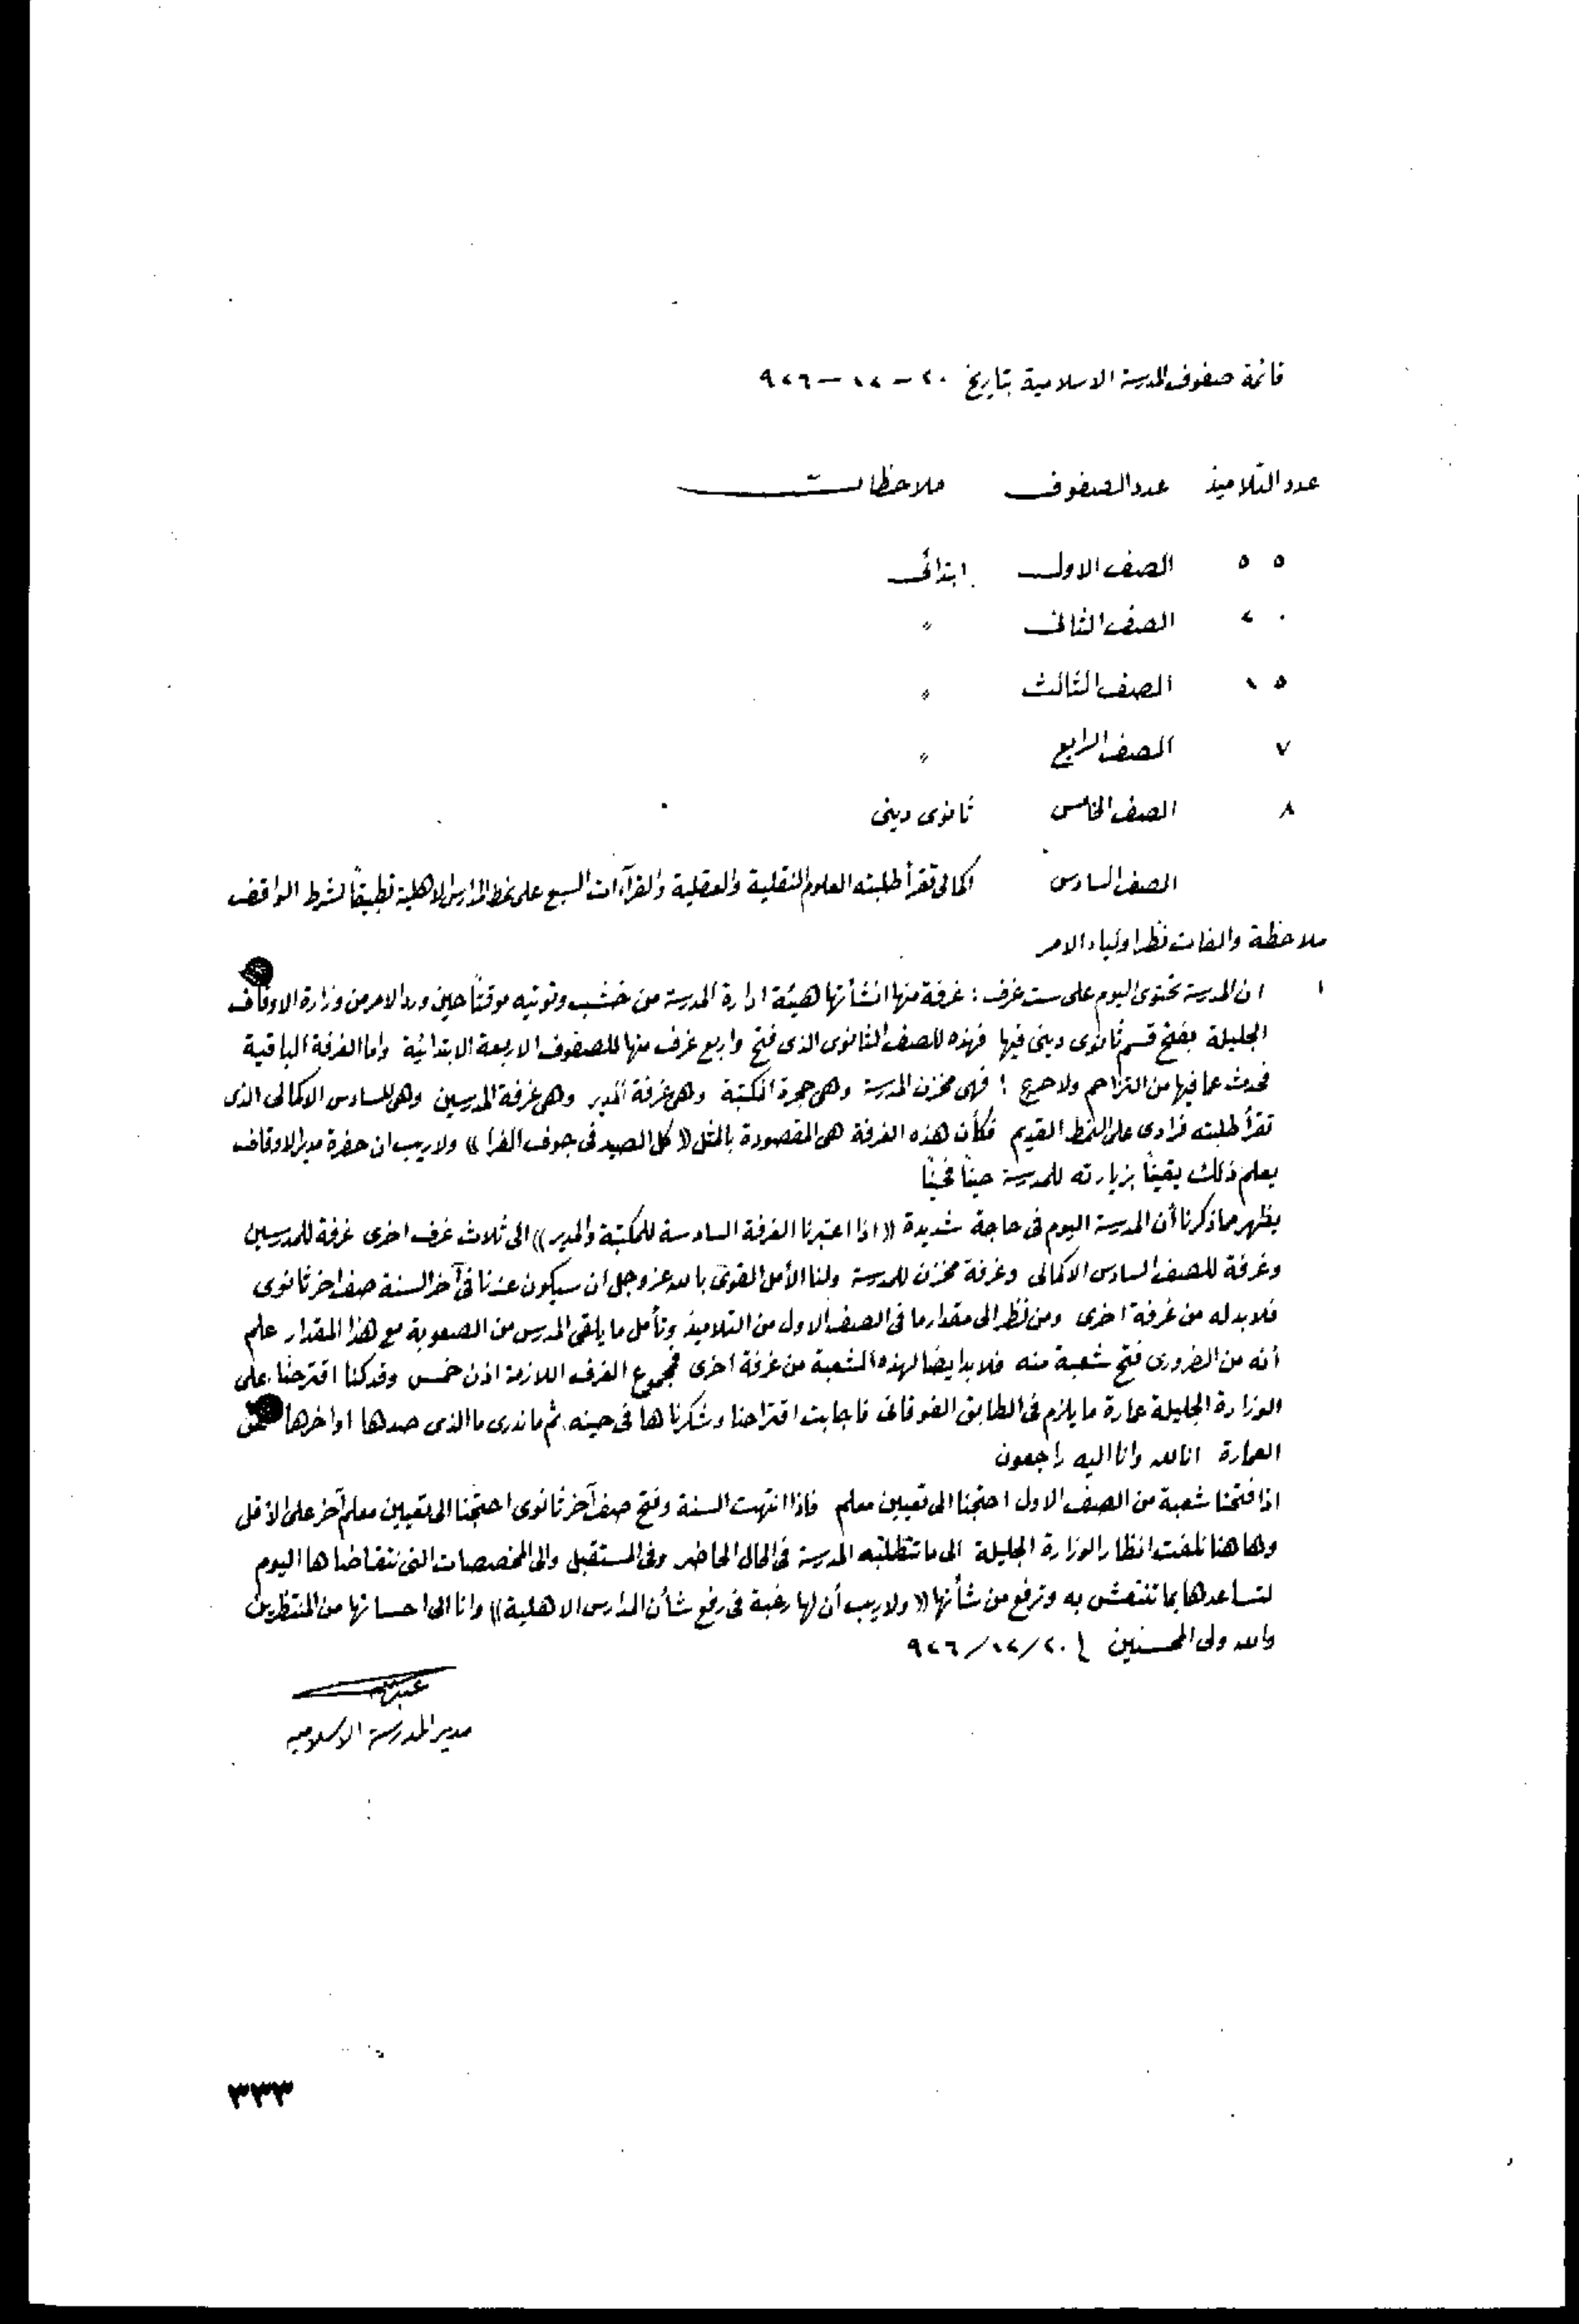 قائمة صفوف المدرسة الاسلامية بتاريخ ٢٠ - ١٢ - ٩٢٦
عدد التلاميذ عدد الصفوف ملاحظات
٥٥ الصف الاول ابتدائى
٢٠ الصف الثانى 〃
١٥ الصف الثالث 〃
٧ الصف الرابع 〃
٨ الصف الخامس ثانوى دينى
الصف السادس اكمالى تقرأ طلبته العلوم النقلية والعقلية والقراآت السبع على نمط المدارس الاهلية تطبيقاً لشرط الواقف
ملاحظة والفات نظر اولياء الامر
١ ان المدرسة تحتوى اليوم على ست غرف : غرفة منها انشأتها هيئة ادارة المدرسة من خشب وتوتيه موقتاً حين ورد الامر من وزارة الاوقاف
الجليلة بفتح قسم ثانوى دينى فيها فهذه للصف الثانوى الذى فتح واربع غرف منها للصفوف الاربعة الابتدائية واما الغرفة الباقية
فحدث عما فيها من التزاحم ولا حرج ! فهى مخزن المدرسة وهى حجرة المكتبة وهى غرفة المدير وهى غرفة المدرسين وهى للسادس الاكمالى الذى
تقرأ طلبته فرادى على النمط القديم فكأن هذه الغرفة هى المقصودة بالمثل (( كل الصيد فى جوف الفرا )) ولا ريب ان حضرة مدير الاوقاف
يعلم ذلك يقيناً بزيارته للمدرسة حيناً فحيناً
يظهر مما ذكرنا أن المدرسة اليوم فى حاجة شديدة (( اذا اعتبرنا الغرفة السادسة للمكتبة والمدير )) الى ثلاث غرف اخرى غرفة للمدرسين
وغرفة للصف السادس الاكمالى وغرفة مخزن للمدرسة ولنا الأمل القوى بالله عز وجل ان سيكون عندنا فى آخر السنة صف اخر ثانوى
فلا بد له من غرفة اخرى ومن نظر الى مقدار ما فى الصف الاول من التلاميذ وتأمل ما يلقى المدرس من الصعوبة مع هذا المقدار علم
أنه من الضرورى فتح شعبة منه فلا بد ايضا لهذه الشعبة من غرفة اخرى فمجموع الغرف اللازمة اذن خمس وقد كنا اقترحنا على
الوزارة الجليلة عمارة ما يلزم فى الطابق الفوقانى فاجابت اقتراحنا وشكرناها فى حينه ثم ما ندرى ما الذى صدها اواخرها عن
العمارة انا لله وانا اليه راجعون
اذا فتحنا شعبة من الصف الاول احتجنا الى تعيين معلم فاذا انتهت السنة وفتح صف آخر ثانوى احتجنا الى تعيين معلم آخر على الاقل
وها هنا نلفت انظار الوزارة الجليلة الى ما تتطلبه المدرسة فى الحال الحاضر وفى المستقبل والى المخصصات التى تتقاضاها اليوم
لتساعدها بما تنتعش به وترفع من شأنها (( ولا ريب أن لها رغبة فى رفع شأن المدارس الاهلية )) وانا الى احساناتها من المنتظرين
والله ولى المحسنين ٢٠/١٢/٩٢٦
مدير المدرسة الاسلامية
٣٣٣